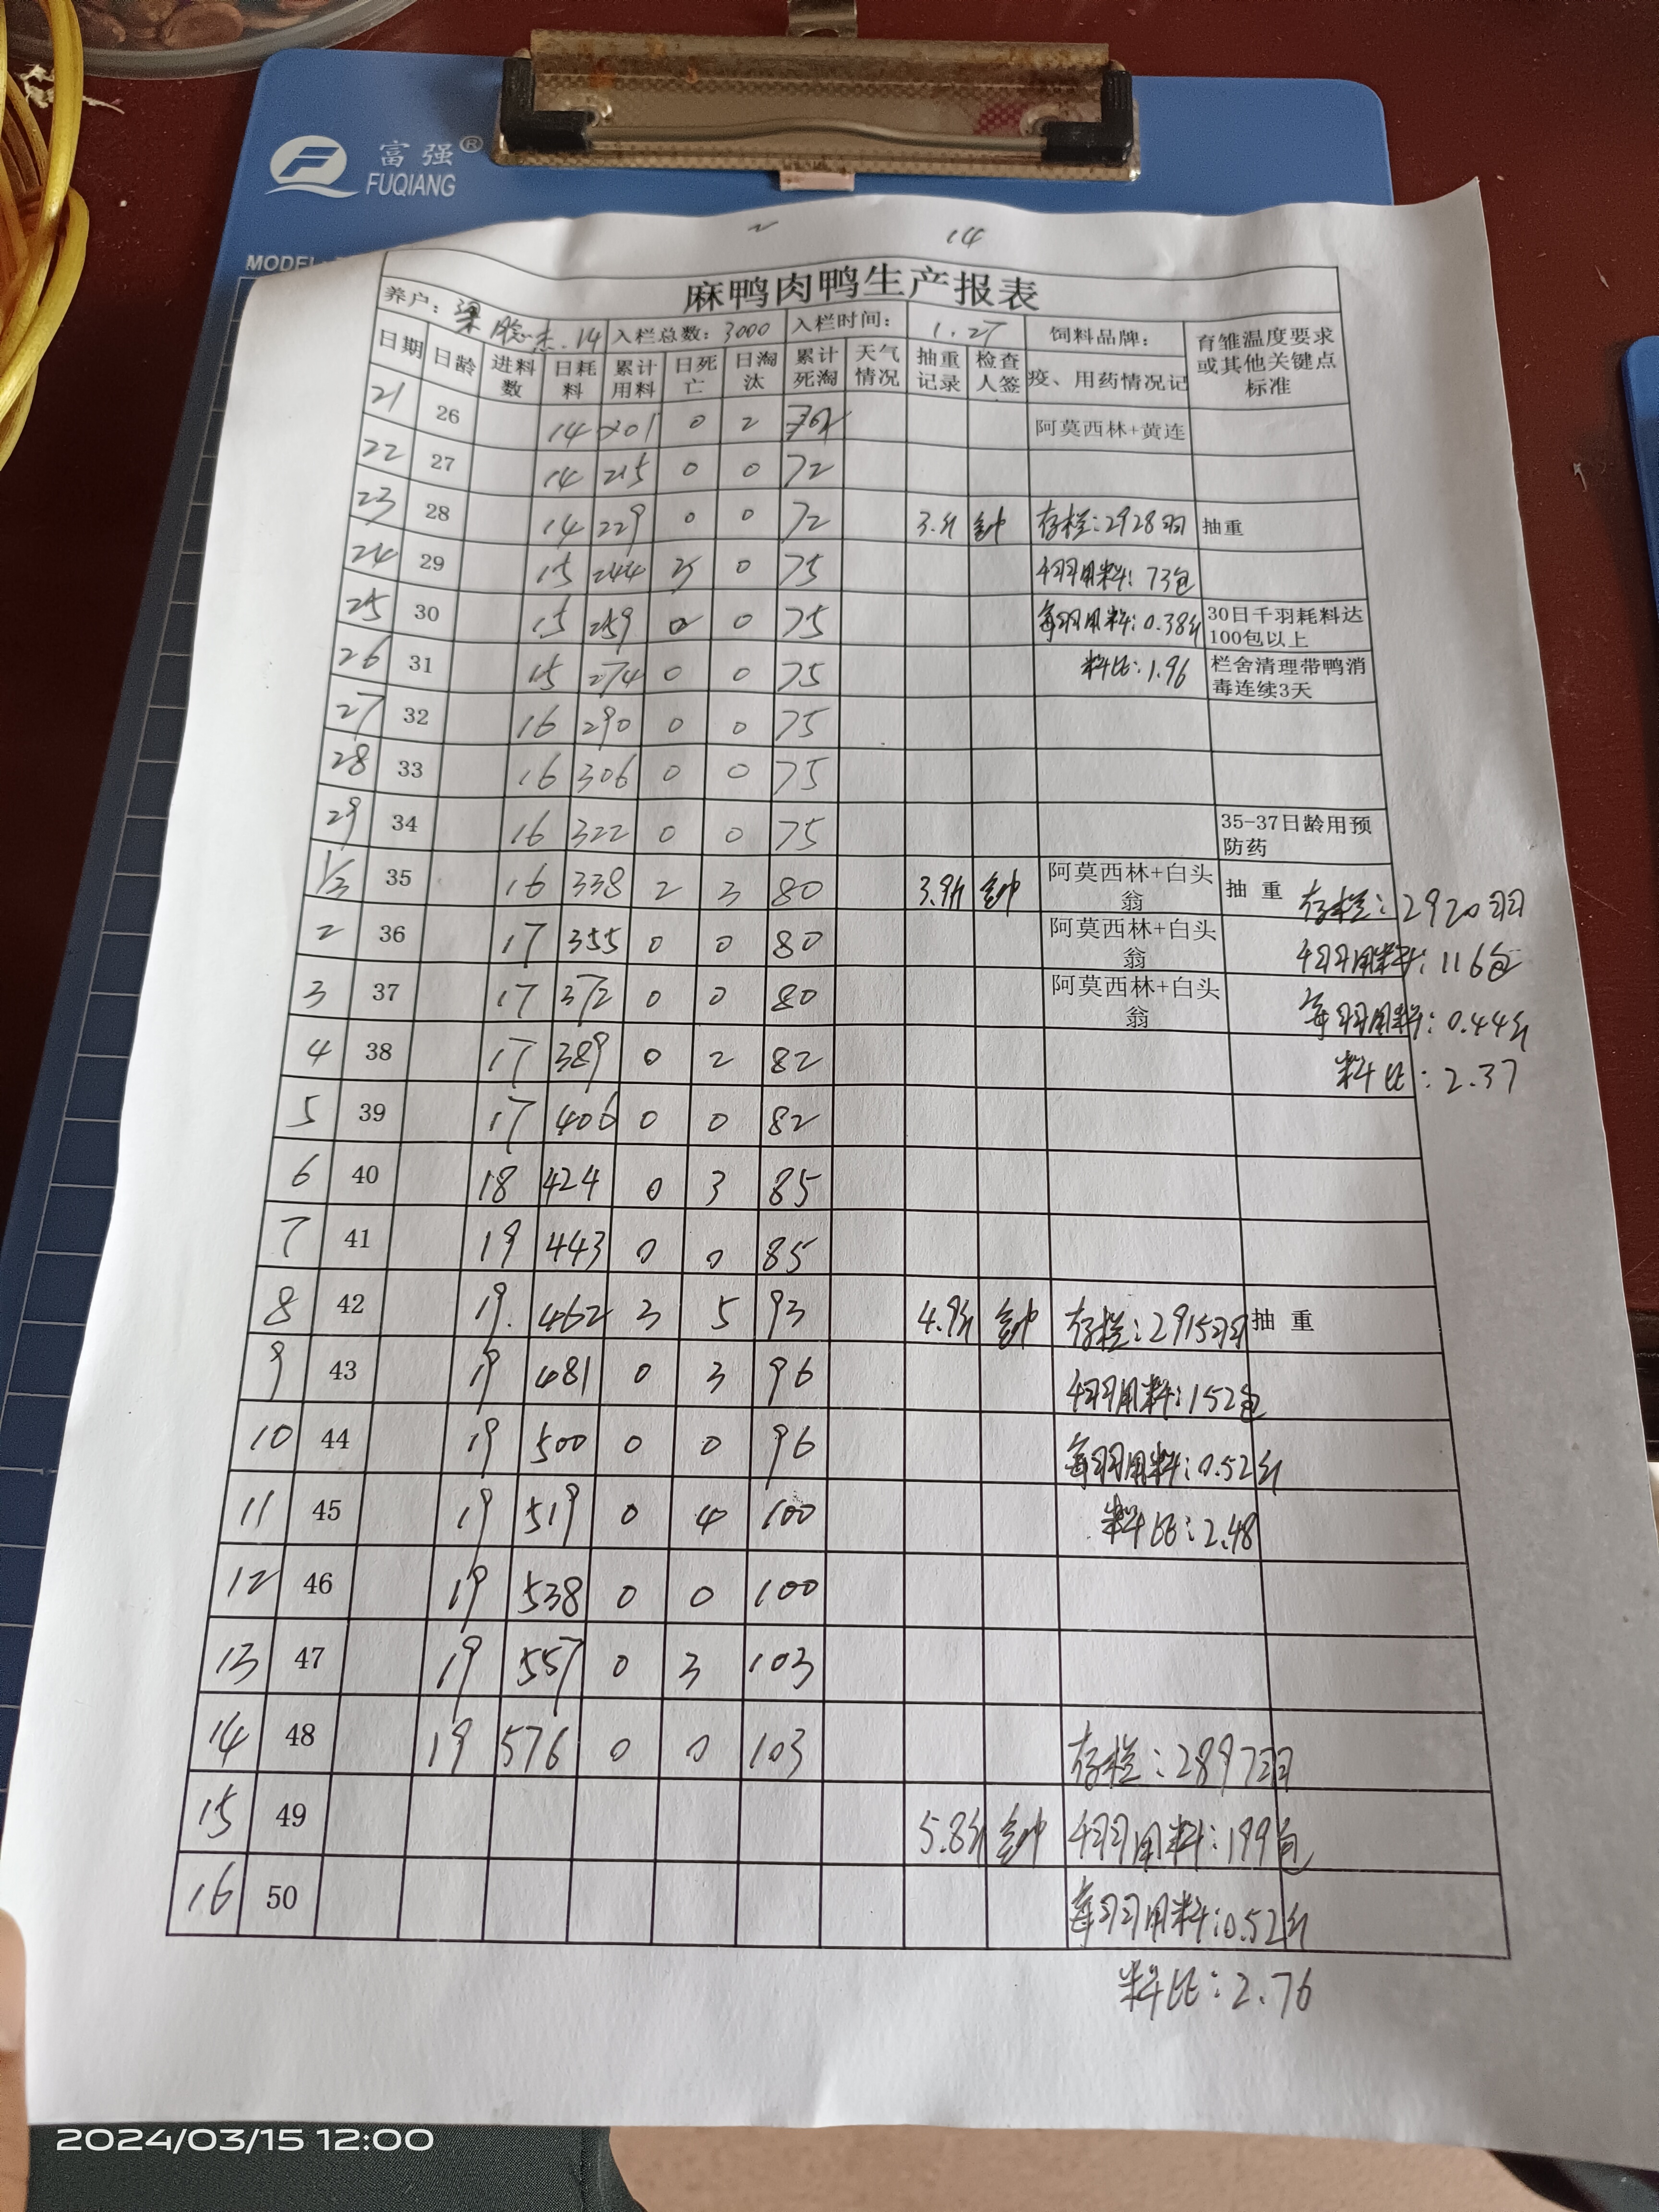 富强®
FUQIANG
MODEL:
2 14
麻鸭肉鸭生产报表
养户: 梁 杰.14 入栏总数: 3000 入栏时间: 1.27 饲料品牌: 育雏温度要求或其他关键点标准
日期 日龄 进料数 日耗料 累计用料 日死亡 日淘汰 累计死淘 天气情况 抽重记录 检查人签 疫、用药情况记
21 26 14 201 0 2 阿莫西林+黄连
22 27 14 215 0 0 72
23 28 14 229 0 0 72 3.斤 存栏:2928羽 抽重
24 29 15 244 0 75 千羽用料:73包
25 30 15 259 0 0 75 每羽用料:0.38斤 30日千羽耗料达100包以上
26 31 15 274 0 0 75 料比:1.96 栏舍清理带鸭消毒连续3天
27 32 16 290 0 0 75
28 33 16 306 0 0 75
29 34 16 322 0 0 75 35-37日龄用预防药
1/3 35 16 338 2 3 80 3.9斤 阿莫西林+白头翁 抽 重 存栏:2920羽
2 36 17 355 0 0 80 阿莫西林+白头翁 千羽用料:116包
3 37 17 372 0 0 80 阿莫西林+白头翁 每羽用料:0.44斤
4 38 17 389 0 2 82 料比:2.37
5 39 17 406 0 0 82
6 40 18 424 0 3 85
7 41 19 443 0 0 85
8 42 19. 462 3 5 93 4.9斤 存栏:2915羽 抽 重
9 43 19 481 0 3 96 千羽用料:152包
10 44 19 500 0 0 96 每羽用料:0.52斤
11 45 19 519 0 4 100 料比:2.48
12 46 19 538 0 0 100
13 47 19 557 0 3 103
14 48 19 576 0 0 103 存栏:2897羽
15 49 5.8斤 千羽用料:199包
16 50 每羽用料:0.52斤
料比:2.76
2024/03/15 12:00